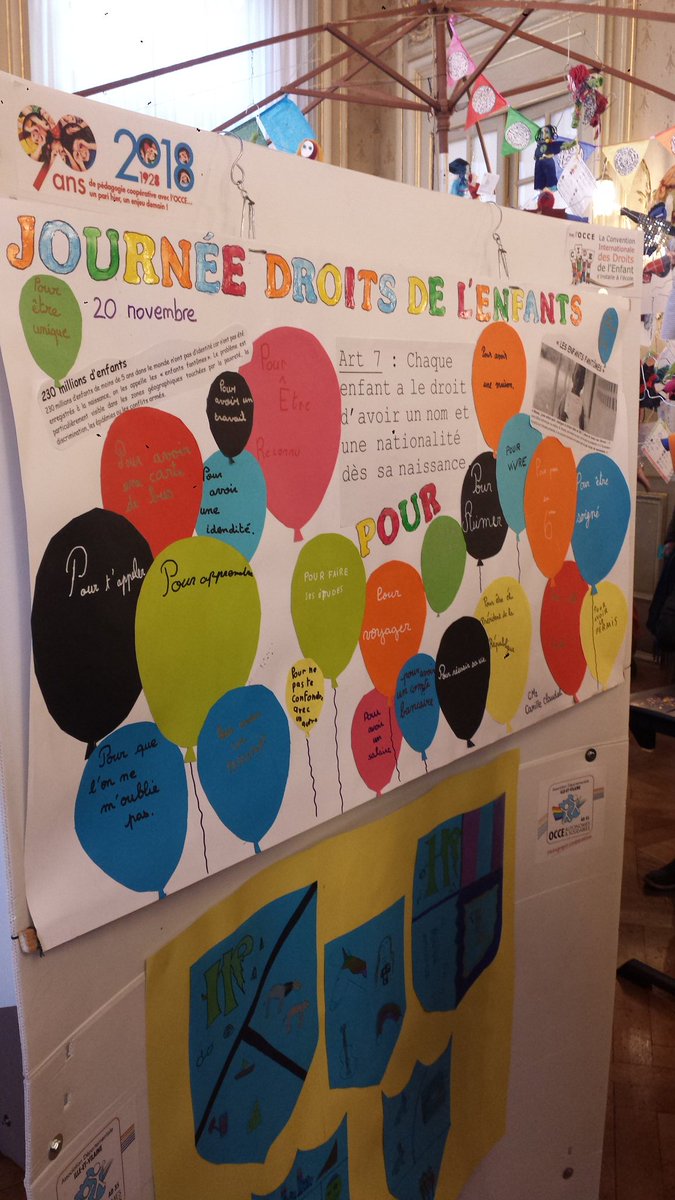 90 ans
1928
2018
de pédagogie coopérative avec l'OCCE...
un pari hier, un enjeu demain !
avec l'OCCE
La Convention
Internationale
des Droits
de l'Enfant
s'installe à l'école
JOURNÉE DROITS DE L'ENFANTS
20 novembre
Pour
être
unique
230 millions d'enfants
230 millions d'enfants de moins de 5 ans dans le monde n'ont pas d'identité car n'ont pas été
enregistrés à la naissance, on les appelle les « enfants fantômes ». Le problème est
particulièrement visible dans les zones géographiques touchées par la pauvreté, la
discrimination, les épidémies ou les conflits armés.
Pour
avoir un
travail
Pour
Être
Reconnu
Art 7 : Chaque
enfant a le droit
d'avoir un nom et
une nationalité
dès sa naissance
Pour avoir
une maison,
« LES ENFANTS FANTÔMES »
Pour avoir
une carte
de bus
Pour
avoir
une
identité.
POUR
Pour
Aimer
POUR
ViVRE
Pour être
soigné
Pour t'appeler
Pour apprendre
POUR FAIRE
ses études
Pour
voyager
Pour être
Président de la
République
POUR
AVOIR
PERMIS
Pour ne
pas te
Confondre
avec
un autre
Pour
avoir un
salaire
pour avoir
un compte
bancaire
Pour réussir sa vie
CM2
Camille Claudel
Pour que
l'on ne
m'oublie
pas.
OCCE
ILLE-ET-VILAINE